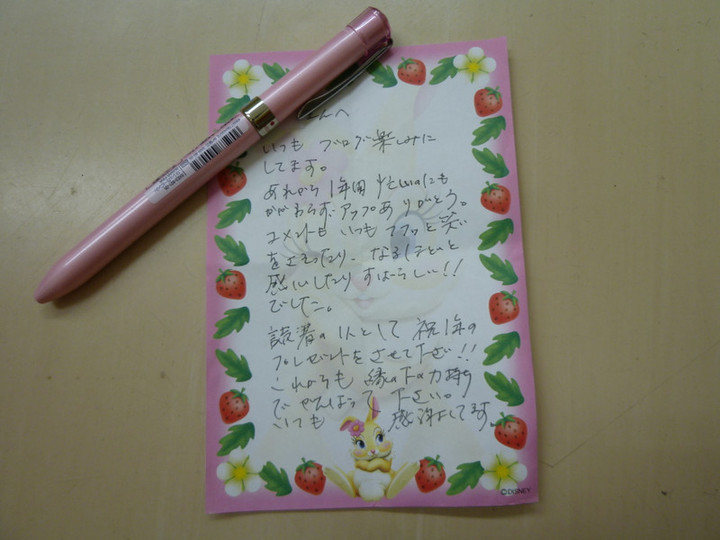 さんへ
いつも ブログ楽しみに
してます。
あれから 1年間 忙しいのにも
かかわらず、アップありがとう。
コメントも いつも フフッと笑
をさそったり、なるほど〜と
感心したり すばらしい!!
でした。
読者の1人として 祝1年の
プレゼントをさせて下さい!!
これからも 縁の下の力持ち
で がんばって 下さい。
いつも 感謝してます。
©DISNEY